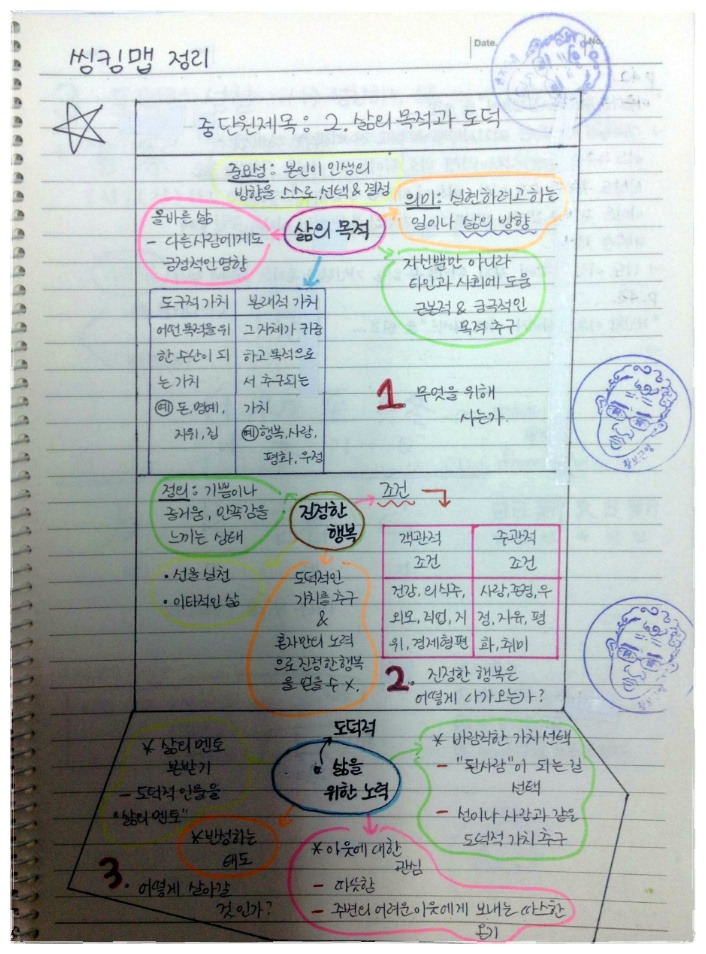 Date.
No.
씽킹맵 정리
중단원제목 : 2. 삶의 목적과 도덕
중요성 : 본인이 인생의
방향을 스스로 선택 & 결정
의미 : 실현하려고 하는
일이나 삶의 방향
삶의 목적
올바른 삶
- 다른사람에게도
긍정적인 영향
자신뿐만 아니라
타인과 사회에 도움
근본적 & 궁극적인
목적 추구
도구적 가치
어떤 목적을 위
한 수산이 되
는 가치
예 돈, 명예,
지위, 집
본래적 가치
그 자체가 귀중
하고 목적으로
서 추구되는
가치
예 행복, 사랑,
평화, 우정
1 무엇을 위해
사는가.
정의 : 기쁨이나
즐거움, 만족감을
느끼는 상태
진정한
행복
조건
• 선을 실천
• 이타적인 삶
도덕적인
가치를 추구
&
혼자만의 노력
으로 진정한 행복
을 얻을 수 X.
객관적
조건
주관적
조건
건강, 의식주,
외모, 직업, 지
위, 경제형편
사랑, 존경, 우
정, 자유, 평
화, 취미
2. 진정한 행복은
어떻게 다가오는가?
도덕적
삶을
위한 노력
* 삶의 멘토
본받기
- 도덕적 인물을
"삶의 멘토"
* 바람직한 가치 선택
- "된사람"이 되는 길
선택
- 선이나 사랑과 같은
도덕적 가치 추구
* 반성하는
태도
* 이웃에 대한
관심
- 따뜻함
- 주변의 어려운 이웃에게 보내는 따스한
온기
3. 어떻게 살아갈
것인가?